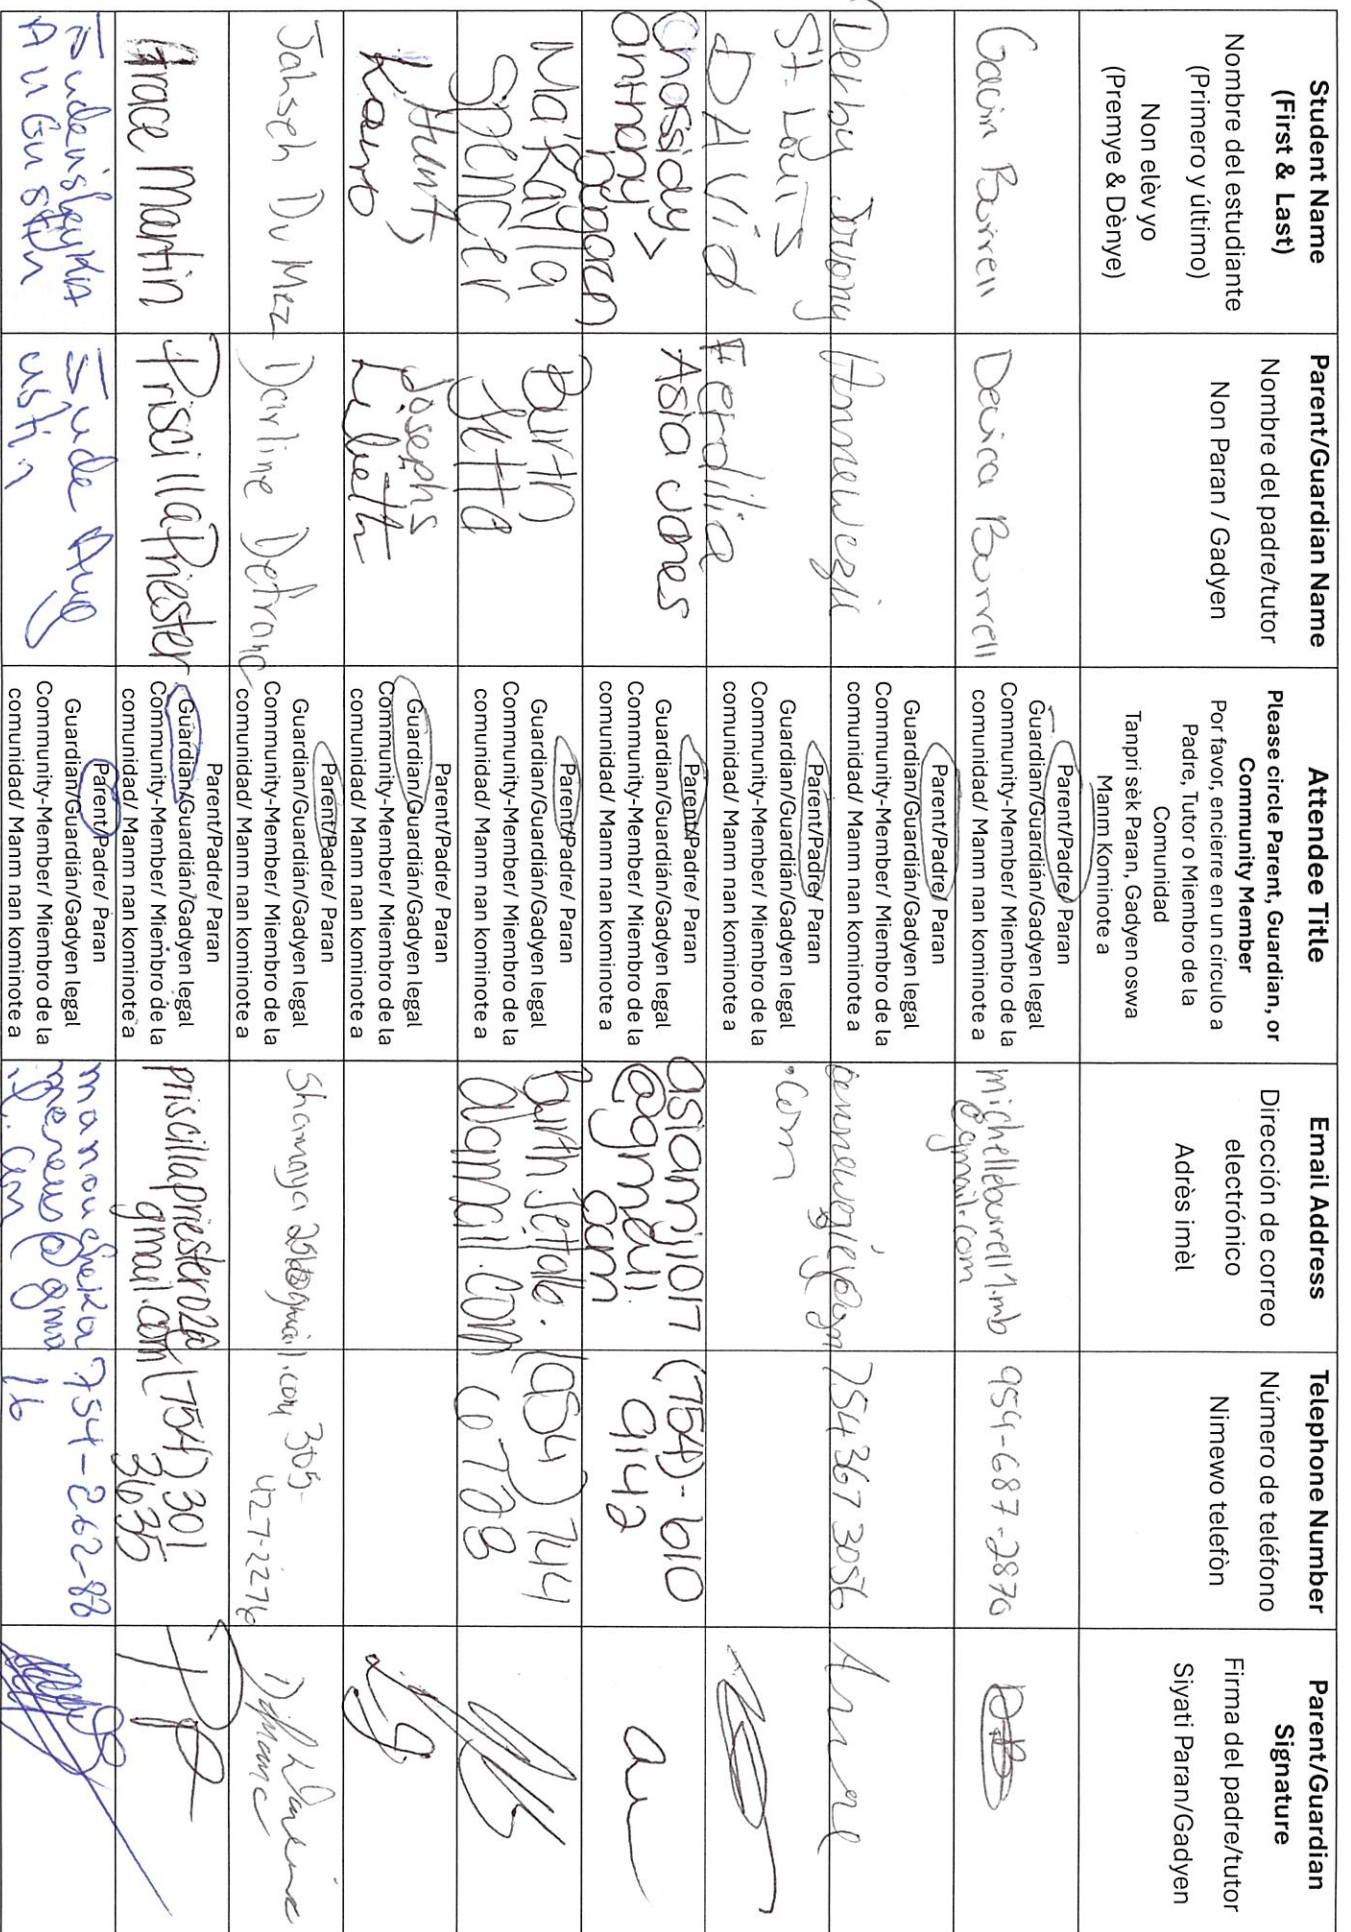 Student Name
(First & Last)
Nombre del estudiante
(Primero y último)
Non elèv yo
(Premye & Dènye)
Parent/Guardian Name
Nombre del padre/tutor
Non Paran / Gadyen
Attendee Title
Please circle Parent, Guardian, or
Community Member
Por favor, encierre en un círculo a
Padre, Tutor o Miembro de la
Comunidad
Tanpri sèk Paran, Gadyen oswa
Manm Kominote a
Email Address
Dirección de correo
electrónico
Adrès imèl
Telephone Number
Número de teléfono
Nimewo telefòn
Parent/Guardian
Signature
Firma del padre/tutor
Siyati Paran/Gadyen
Gavin Burrell
Devica Burrell
Parent/Padre/ Paran
Guardian/Guardián/Gadyen legal
Community-Member/ Miembro de la
comunidad/ Manm nan kominote a
michelleburrell1.mb
@gmail.com
954-687-2870
DB
St-Louis
Parent/Padre/ Paran
Guardian/Guardián/Gadyen legal
Community-Member/ Miembro de la
comunidad/ Manm nan kominote a
754 367 3056
Anne
DAVid
Ferdilia
Parent/Padre/ Paran
Guardian/Guardián/Gadyen legal
Community-Member/ Miembro de la
comunidad/ Manm nan kominote a
.com
Chassidy >
anthony
Asia Jones
Parent/Padre/ Paran
Guardian/Guardián/Gadyen legal
Community-Member/ Miembro de la
comunidad/ Manm nan kominote a
asiamj1017
@gmail.
com
(754)-610
9142
Ma'Kayla
Spencer
Burth
Jetta
Parent/Padre/ Paran
Guardian/Guardián/Gadyen legal
Community-Member/ Miembro de la
comunidad/ Manm nan kominote a
(954) 744
6728
Hunt,
Kairo
Josephs
Lilieth
Parent/Padre/ Paran
Guardian/Guardián/Gadyen legal
Community-Member/ Miembro de la
comunidad/ Manm nan kominote a
Jahseh Du Mez
Darline Defranc
Parent/Padre/ Paran
Guardian/Guardián/Gadyen legal
Community-Member/ Miembro de la
comunidad/ Manm nan kominote a
305-
427-2276
Grace Martin
Priscilla Priester
Parent/Padre/ Paran
Guardian/Guardián/Gadyen legal
Community-Member/ Miembro de la
comunidad/ Manm nan kominote a
priscillapriester02@
gmail.com
(754) 301
3635
PP
Augustin
Jude Aug
ustin
Parent/Padre/ Paran
Guardian/Guardián/Gadyen legal
Community-Member/ Miembro de la
comunidad/ Manm nan kominote a
manoucheka
mereus@gma
il.com
754-262-88
16